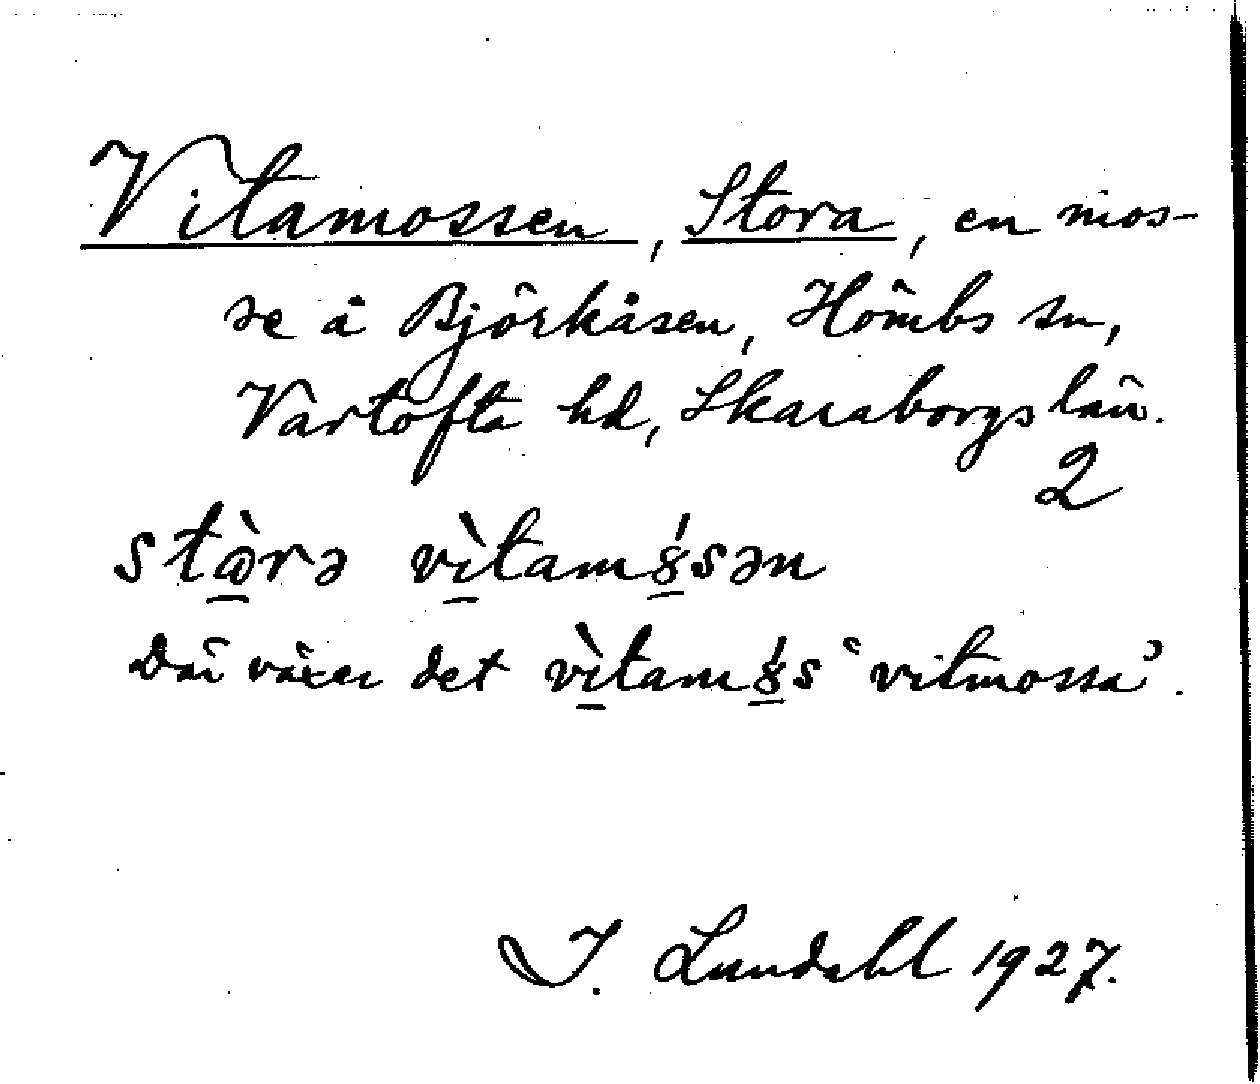 Vitamossen, Stora, en mos-
se å Björkåsen, Hömbs sn,
Vartofta hd, Skaraborgs län.
2
stɷ̀rə vìtamɞ́sən
Där växer det vìtamɞ́s ʽvitmossaʼ.
I. Lundahl 1927.